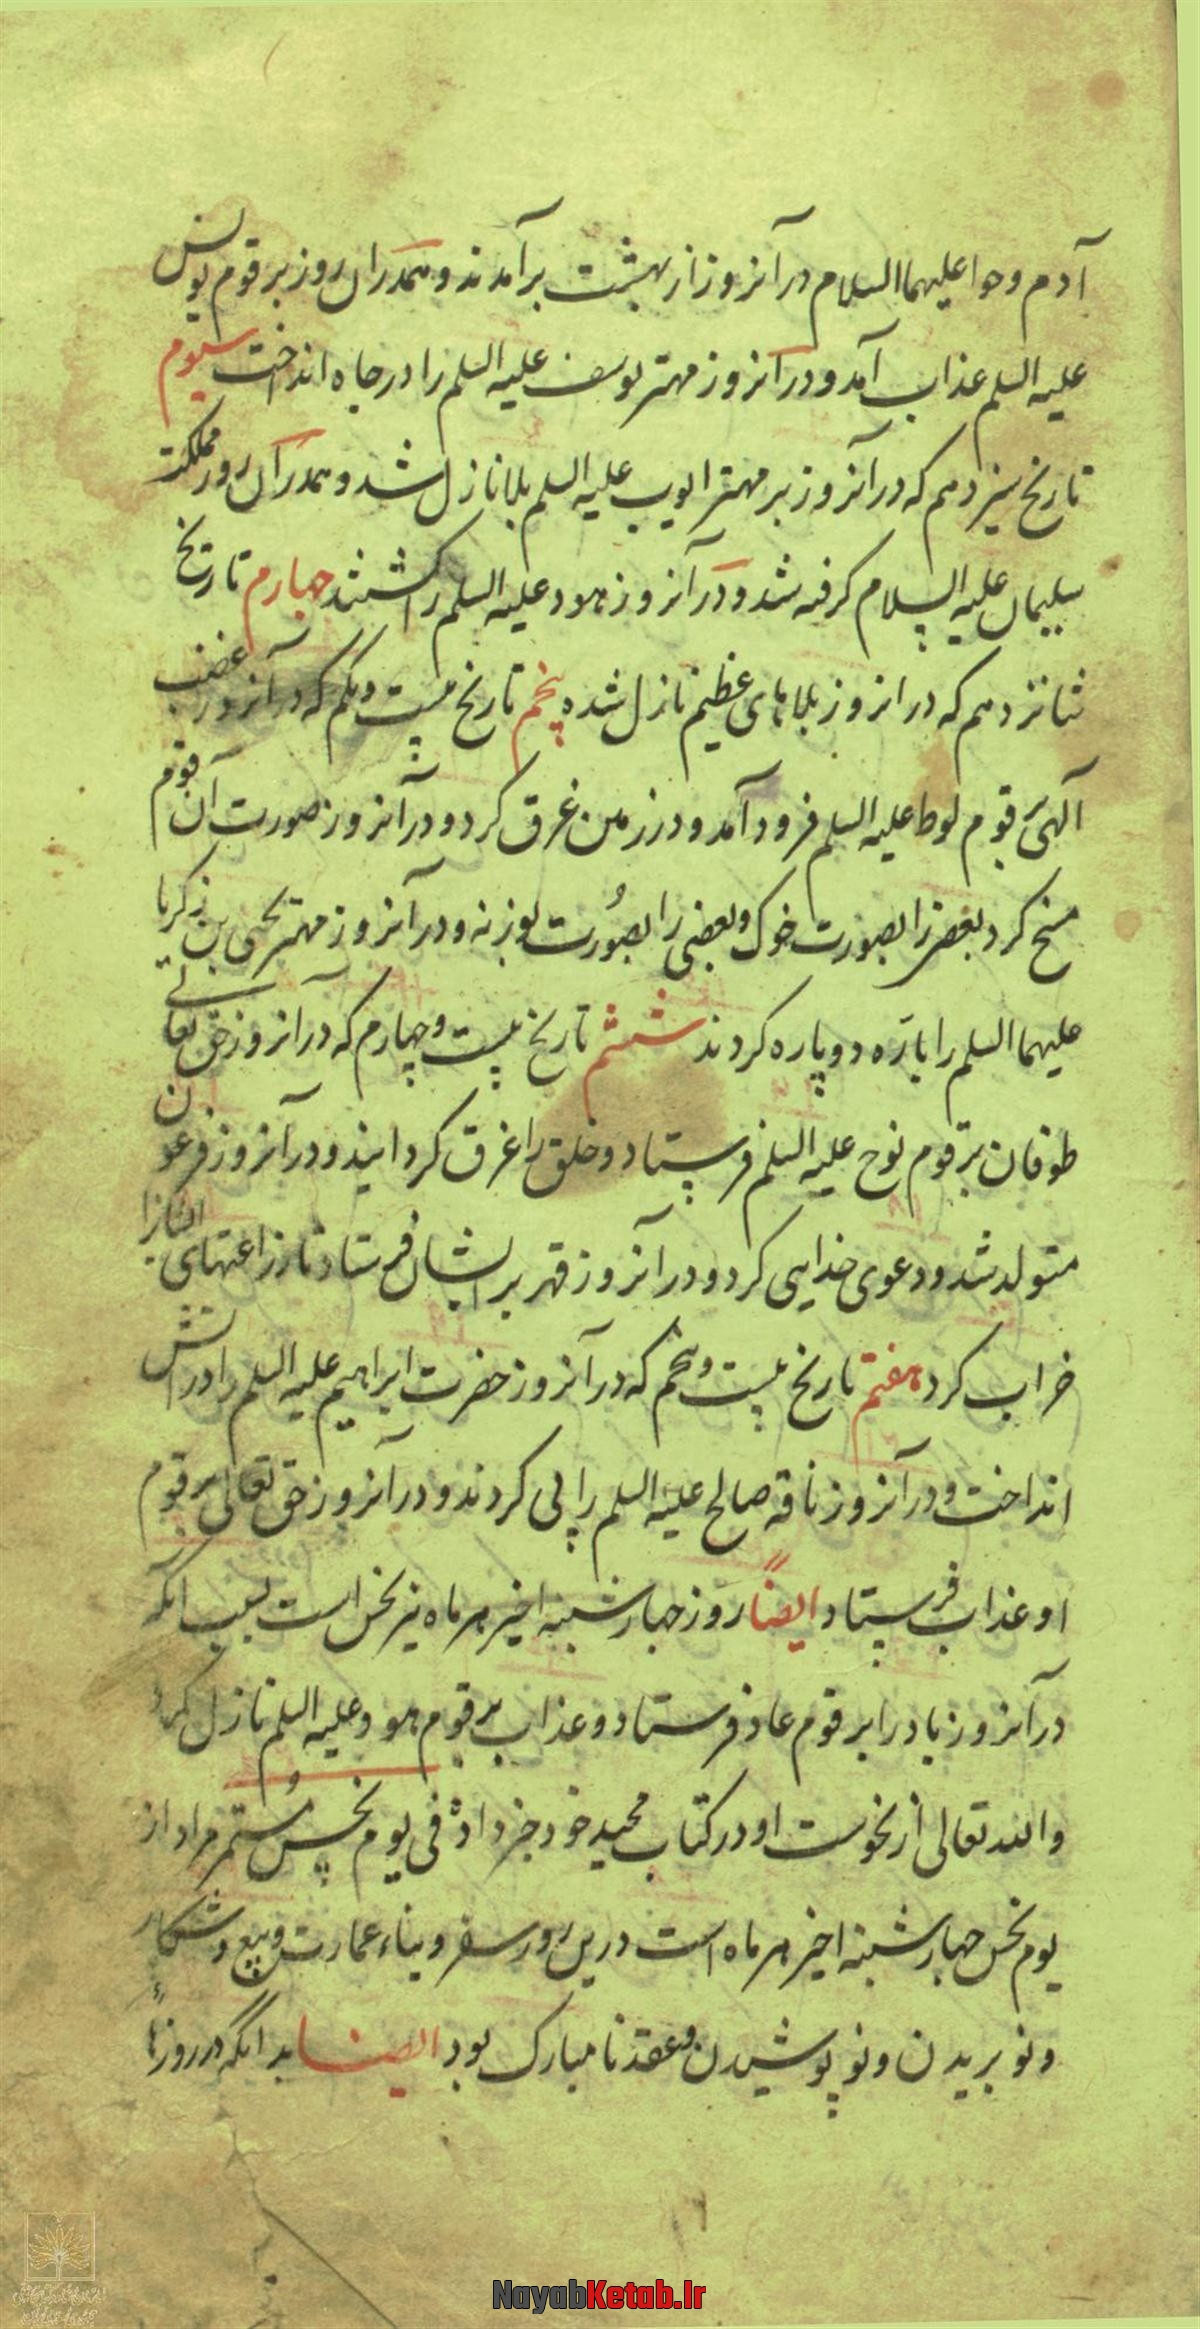 آدم و حوا علیهما السلام در آنروز از بهشت برآمدند و همدران روز بر قوم یونس
علیه السلم عذاب آمد و در آنروز مهتر یوسف علیه السلم را در چاه انداخت سیوم
تاریخ سیزدهم که در آنروز بر مهتر ایوب علیه السلم بلا نازل شد و همدرآن روز مملکت
سلیمان علیه السلام گرفته شد و در آنروز هود علیه السلم را کشتند چهارم تاریخ
شانزدهم که در انروز بلاهای عظیم نازل شده پنجم تاریخ بیست ویکم که در آنروز غضب
آلهی بر قوم لوط علیه السلم فرود آمد و در زمین غرق کرد و در آنروز صورت آن قوم
مسخ کرد بعضی را بصورت خوک و بعضی را بصورت بوزنه و در آنروز مهتر یحیی بن زکریا
علیهما السلم را باره دوپاره کردند ششم تاریخ بیست و چهارم که در آنروز حق تعالی
طوفان بر قوم نوح علیه السلم فرستاد و خلق را غرق کردانید و در آنروز فرعون
متولد شد و دعوی خدایی کرد و در آنروز قهر بر ایشان فرستاد تا زراعتهای ایشانرا
خراب کرد هفتم تاریخ بیست و پنجم که در آنروز حضرت ابراهیم علیه السلم را در آتش
انداخت و در آنروز ناقه صالح علیه السلم را پی کردند و در آنروز حق تعالی بر قوم
او عذاب فرستاد ایضاً روز چهارشنبه اخیر هر ماه نیز نحس است بسبب آنکه
در آنروز باد را بر قوم عاد فرستاد و عذاب بر قوم هود علیه السلم نازل کرد
والله تعالی از نحوست او در کتاب مجید خود خبر داد فی یوم نحس مستمر مراد از
یوم نحس چهارشنبه اخیر هر ماه است درین روز سفر و بناء عمارت و بیع و شکار
و نو بریدن و نو پوشیدن و عقد نامبارک بود ایضا بدانکه در روزها
NayabKetab.Ir